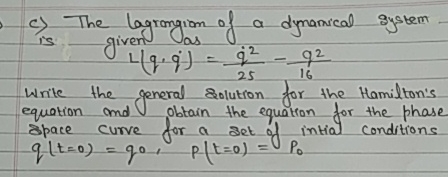 c) The lagrangian of a dynamical system
is given as
L(q, q̇) = q̇²/25 - q²/16
Write the general solution for the Hamilton's
equation and obtain the equation for the phase
space curve for a set of intial conditions
q(t=0) = q0, p(t=0) = P0